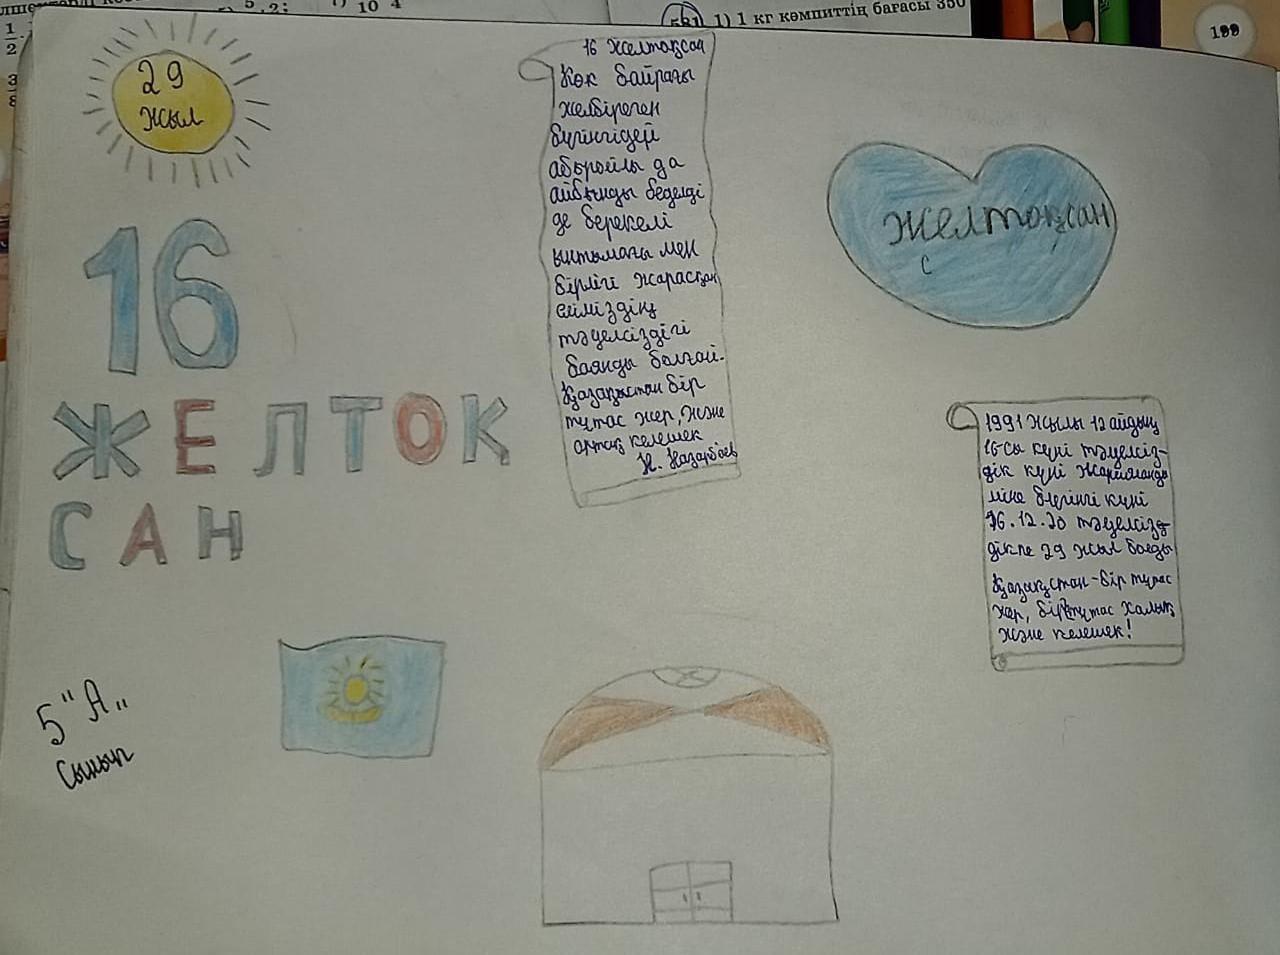 1) 1 кг кәмпиттің бағасы 350
199
29
жыл
16
ЖЕЛТОК
САН
5 "А"
сынып
16 Желтоқсан
Көк байрағы
желбіреген
бүгінгідей
абыройлы да
айбынды беделді
де берекелі
ынтымағы мен
бірлігі жарасқан
еліміздің
тәуелсіздігі
баянды болғай.
Қазақстан бір
тұтас жер, және
ортақ келешек
Н. Назарбаев
Желтоқсан
с
1991 жылы 12 айдың
16-сы күні тәуелсіз-
дік күні жарияланды
міне бүгінгі күні
16.12.20 тәуелсізд
дікке 29 жыл болды
Қазақстан-бір тұтас
жер, біртұтас халық
және келешек!